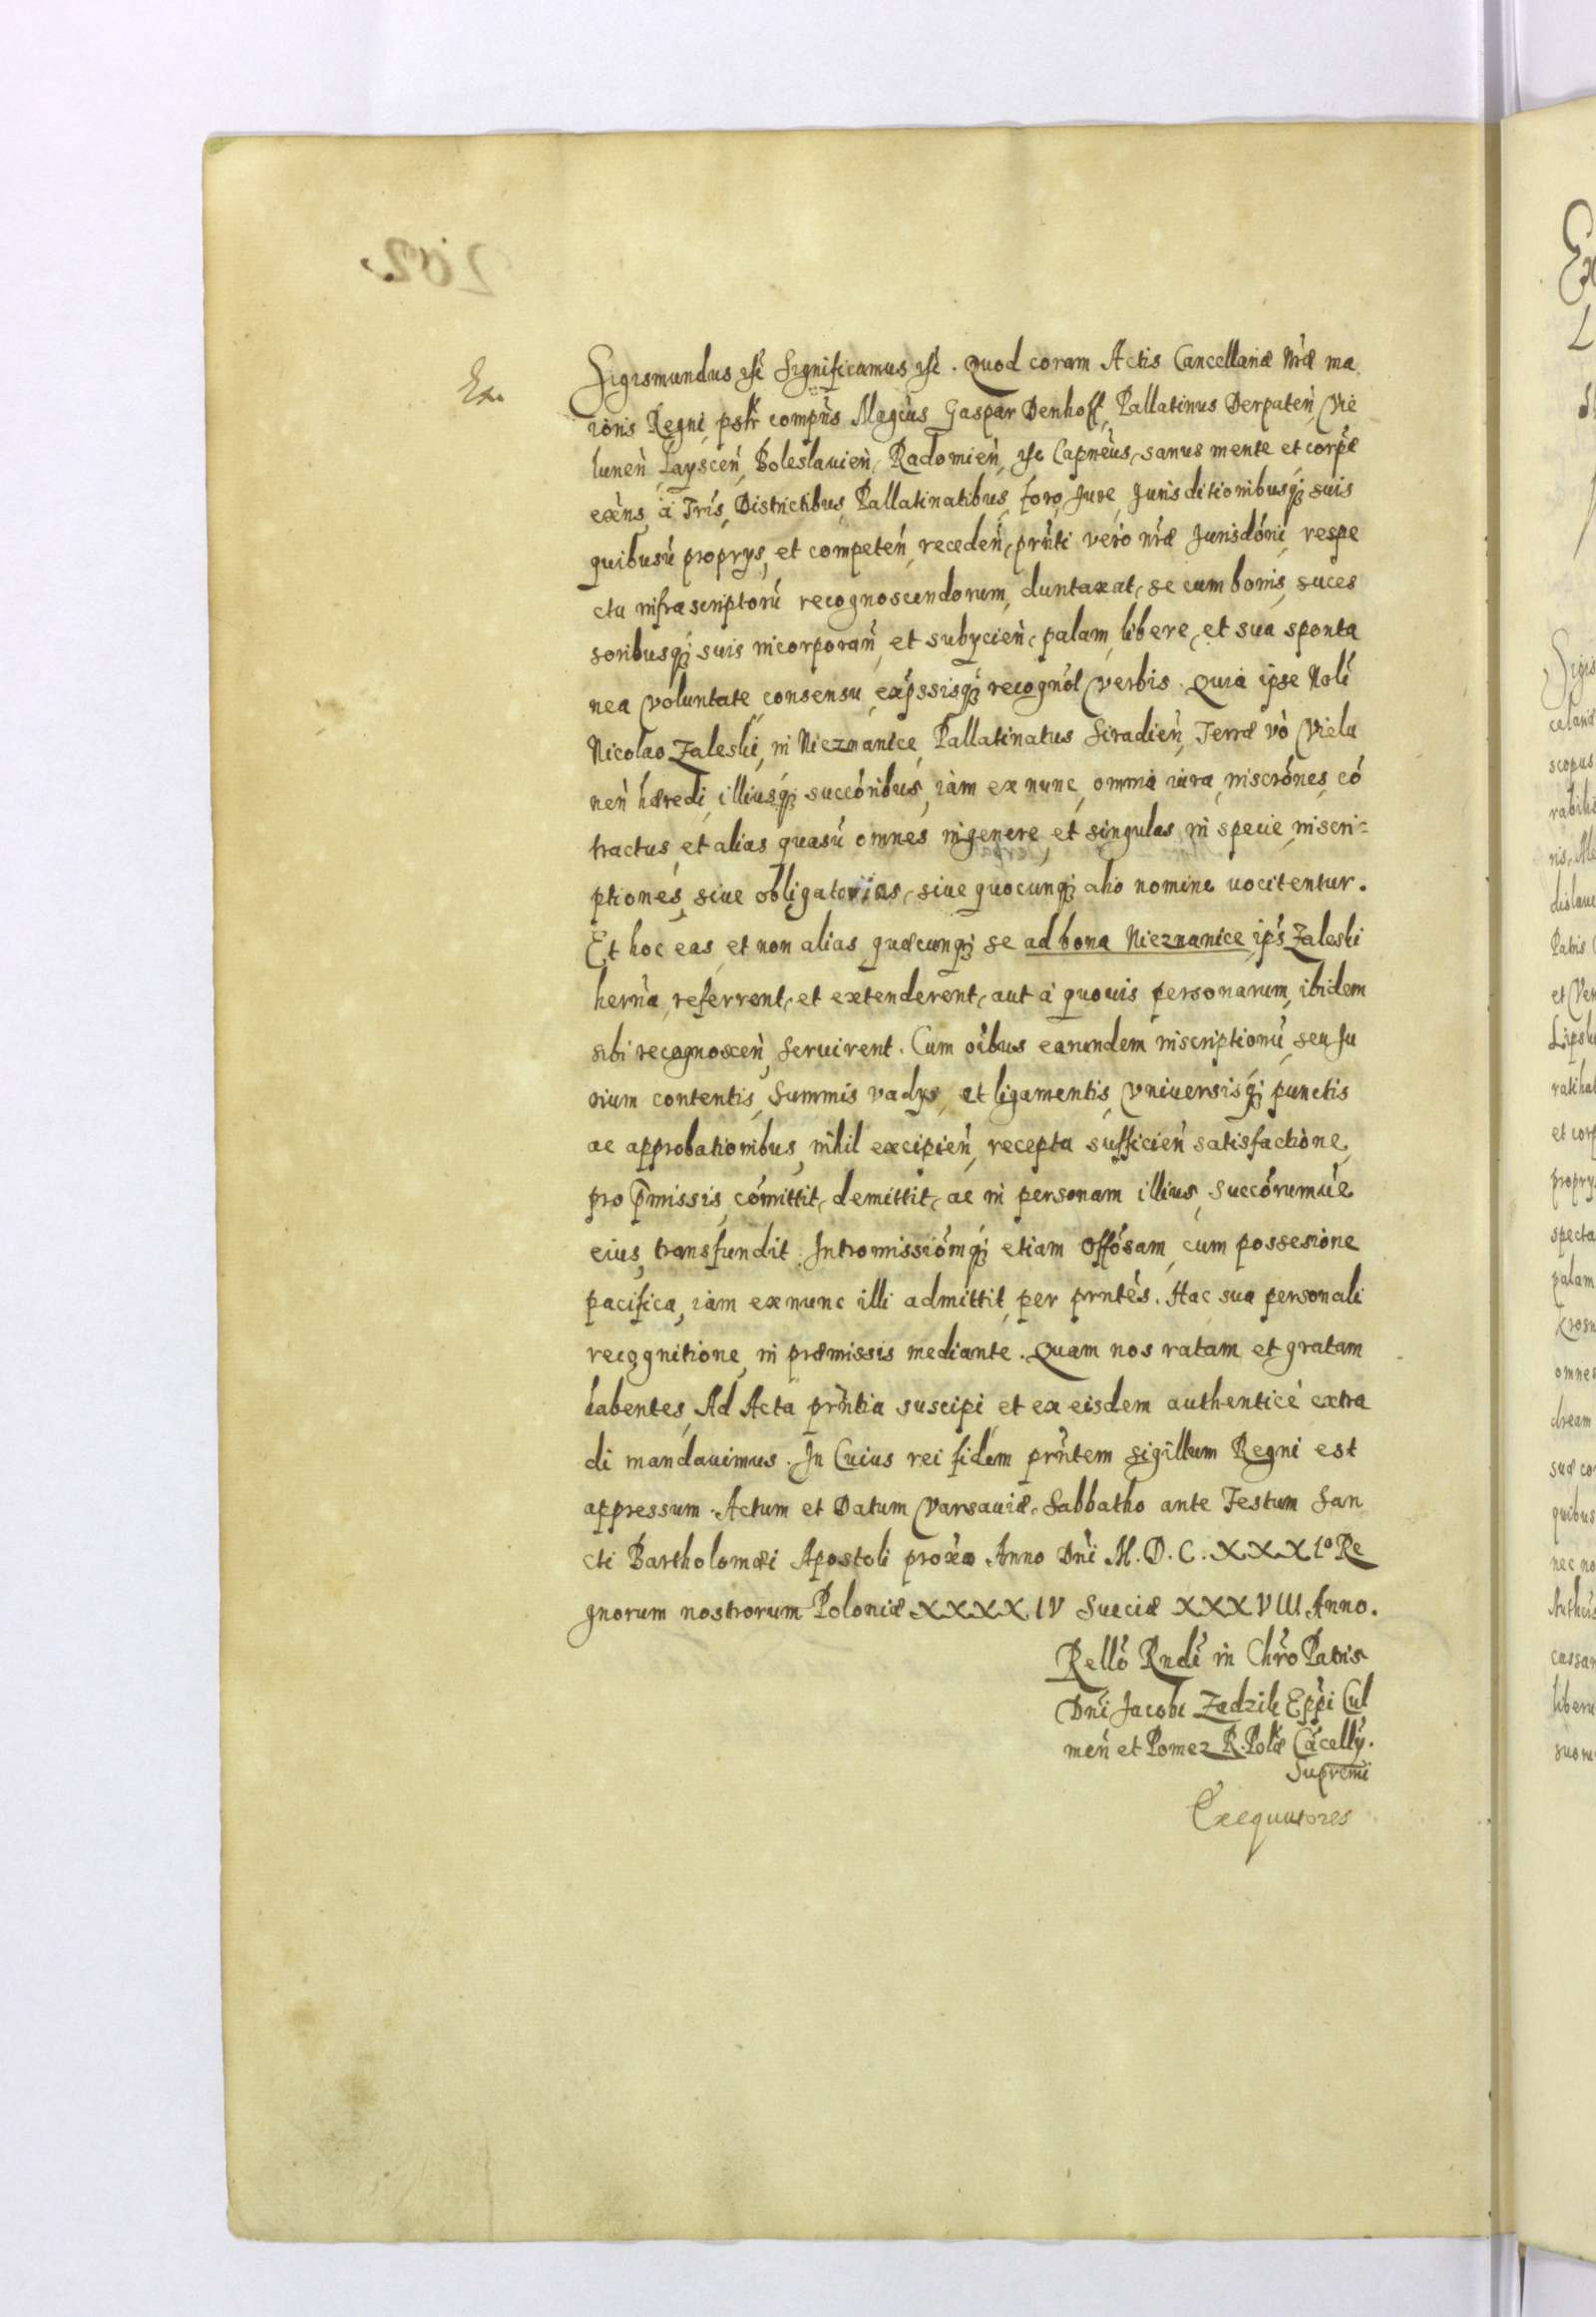 Ex
Sigismundus etc Significamus etc. Quod coram Actis Cancellariæ Nr̃æ ma
ioris Regni psltr compñs Magcus Gaspar Denhoff, Pallatinus Derpateñ, Vie
luneñ Laysceñ, Boleslauieñ, Radomieñ, etc Capneus, sanus mente et corpe
exẽns, à Tris, Districtibus, Pallatinatibus, foro, Jure, Jurisditionibusq̃ suis
quibusũ proprys, et competeñ, recedeñ, prñti vero nr̃æ Jurisdóni, respe
ctu infrascriptorũ recognoscendorum, duntaxat, se cum bonis, suces
soribusq̃ suis incorporañ, et subycień, palam, libere, et sua sponta
nea voluntate, consensu, expssisq̃ recognoũt verbis. Quia ipse Noli
Nicolao Zaleski, in Nieznanice, Pallatinatus Siradień, Terræ vò Vielu
neñ hæredi, illiusq̃ succóribus, iàm ex nunc, omnia iura, inscrónes, có
tractus, et alias quasũ omnes in genere, et singulas in specie, inscri=
ptiones, siue obligatorias, siue quocunq̃ alio nomine uocitentur.
Et hoc eas, et non alias, quæcunq̃ se ad bona Nieznanice, ips Zaleski
herña, referrent, et extenderent, aut à quouis personarum, ibidem
sibi recognosceñ, seruirent. Cum oĩbus earundem inscriptionũ, seu Ju
rium contentis, Summis vadys, et ligamentis, Vniuersisq̃ punctis
ac approbationibus, nihil excipieñ, recepta sufficieñ satisfactione,
pro p̃missis, cómittit, demittit, ac in personam illius, succórumuè
eius, transfundit. Intromissiómq̃ etiam Offósam, cum possesione
pacifica, iàm ex nunc illi admittit, per prntès. Hac sua personali
recognitione, in præmissis mediante. Quam nos ratam et gratam
habentes, Ad Acta prñtia suscipi et ex eisdem authenticè extra
di mandauimus. In Cuius rei fidem prñtem sigillum Regni est
appressum. Actum et Datum Varsauiæ, Sabbatho ante Festum San
cti Bartholomæi Apostoli proxo Anno Dñi M.D.C.XXX1º Re
gnorum nostrorum Poloniæ XXXXIV Sueciæ XXXVIII Anno.
Rello Rndi in Chro Patris
Dñi Jacobi Zadzik Eppi Cul
meñ et Pomez R. Polæ Cácellÿ.
Supremi
Exequutores